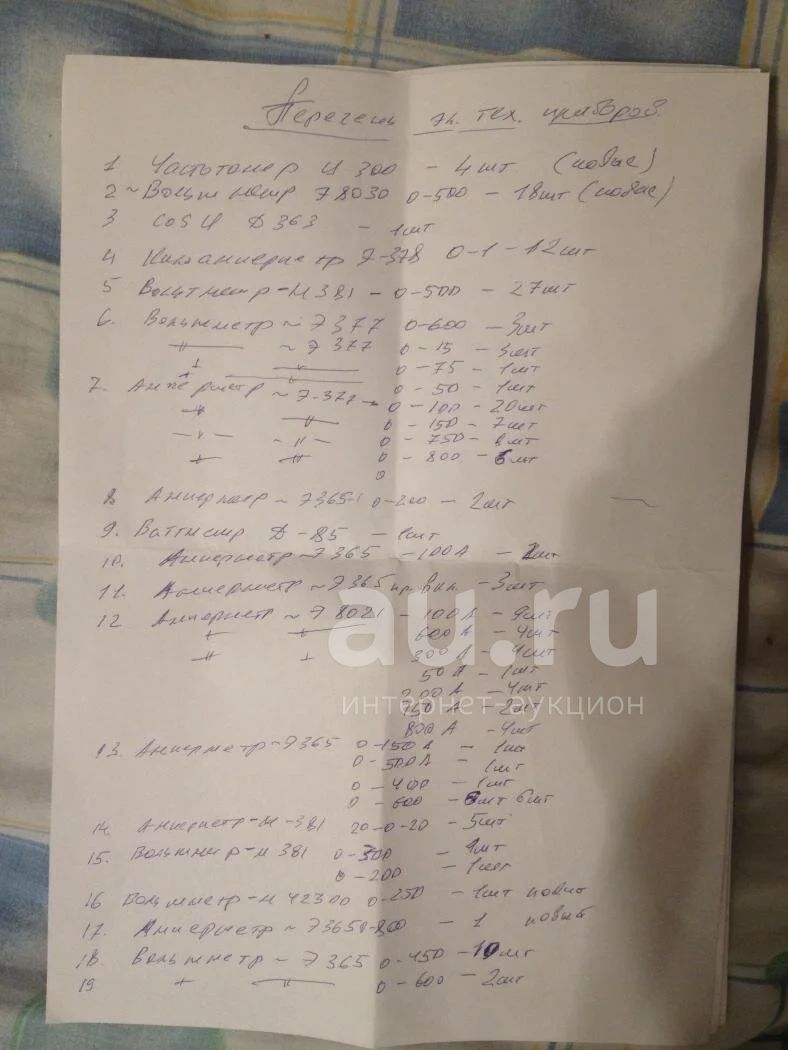 Перечень эл. тех. приборов.
1 Частотомер Ц 300 - 4шт (новые)
2 ~ Вольтметр Э8030 0-500 - 18шт (новые)
3 cos Ц Д 363 - 1шт
4 Килоамперметр Э-378 0-1 - 12шт
5 Вольтметр - М381 - 0-500 - 27шт
6. Вольтметр ~ Э377 0-600 - 3шт
-"- ~ Э 377 0-15 - 3шт
0-75 - 1шт
7. Амперметр ~ Э-377 - 0-50 - 1шт
0-100 - 20шт
0-150 - 7шт
-"- ~ -"- 0-750 - шт
0-800 - шт
0
8 Амперметр ~ Э365-1 0-200 - 2шт
9. Ваттметр Д-85 - 1шт
10. Амперметр ~ Э365 - 100А - шт
11. Амперметр ~ Э365 пр. вкл. - 3шт
12 Амперметр ~ Э8021 - 100А - 9шт
600А - 4шт
300А - 4шт
50А - 1шт
200А - 4шт
150А - 2шт
800А - 4шт
au.ru
интернет-аукцион
13. Амперметр ~ Э365 0-150А - 1шт
0-500А - 1шт
0-400 - 1шт
0-600 - 6шт 6шт
14. Амперметр - М-381 20-0-20 - 5шт
15. Вольтметр - М381 0-300 - шт
0-200 - 1шт
16 Вольтметр - М42300 0-250 - 1шт новый
17. Амперметр ~ Э365 0-800 - 1 новый
18. Вольтметр ~ Э365 0-450 - 10шт
19 0-600 - 2шт